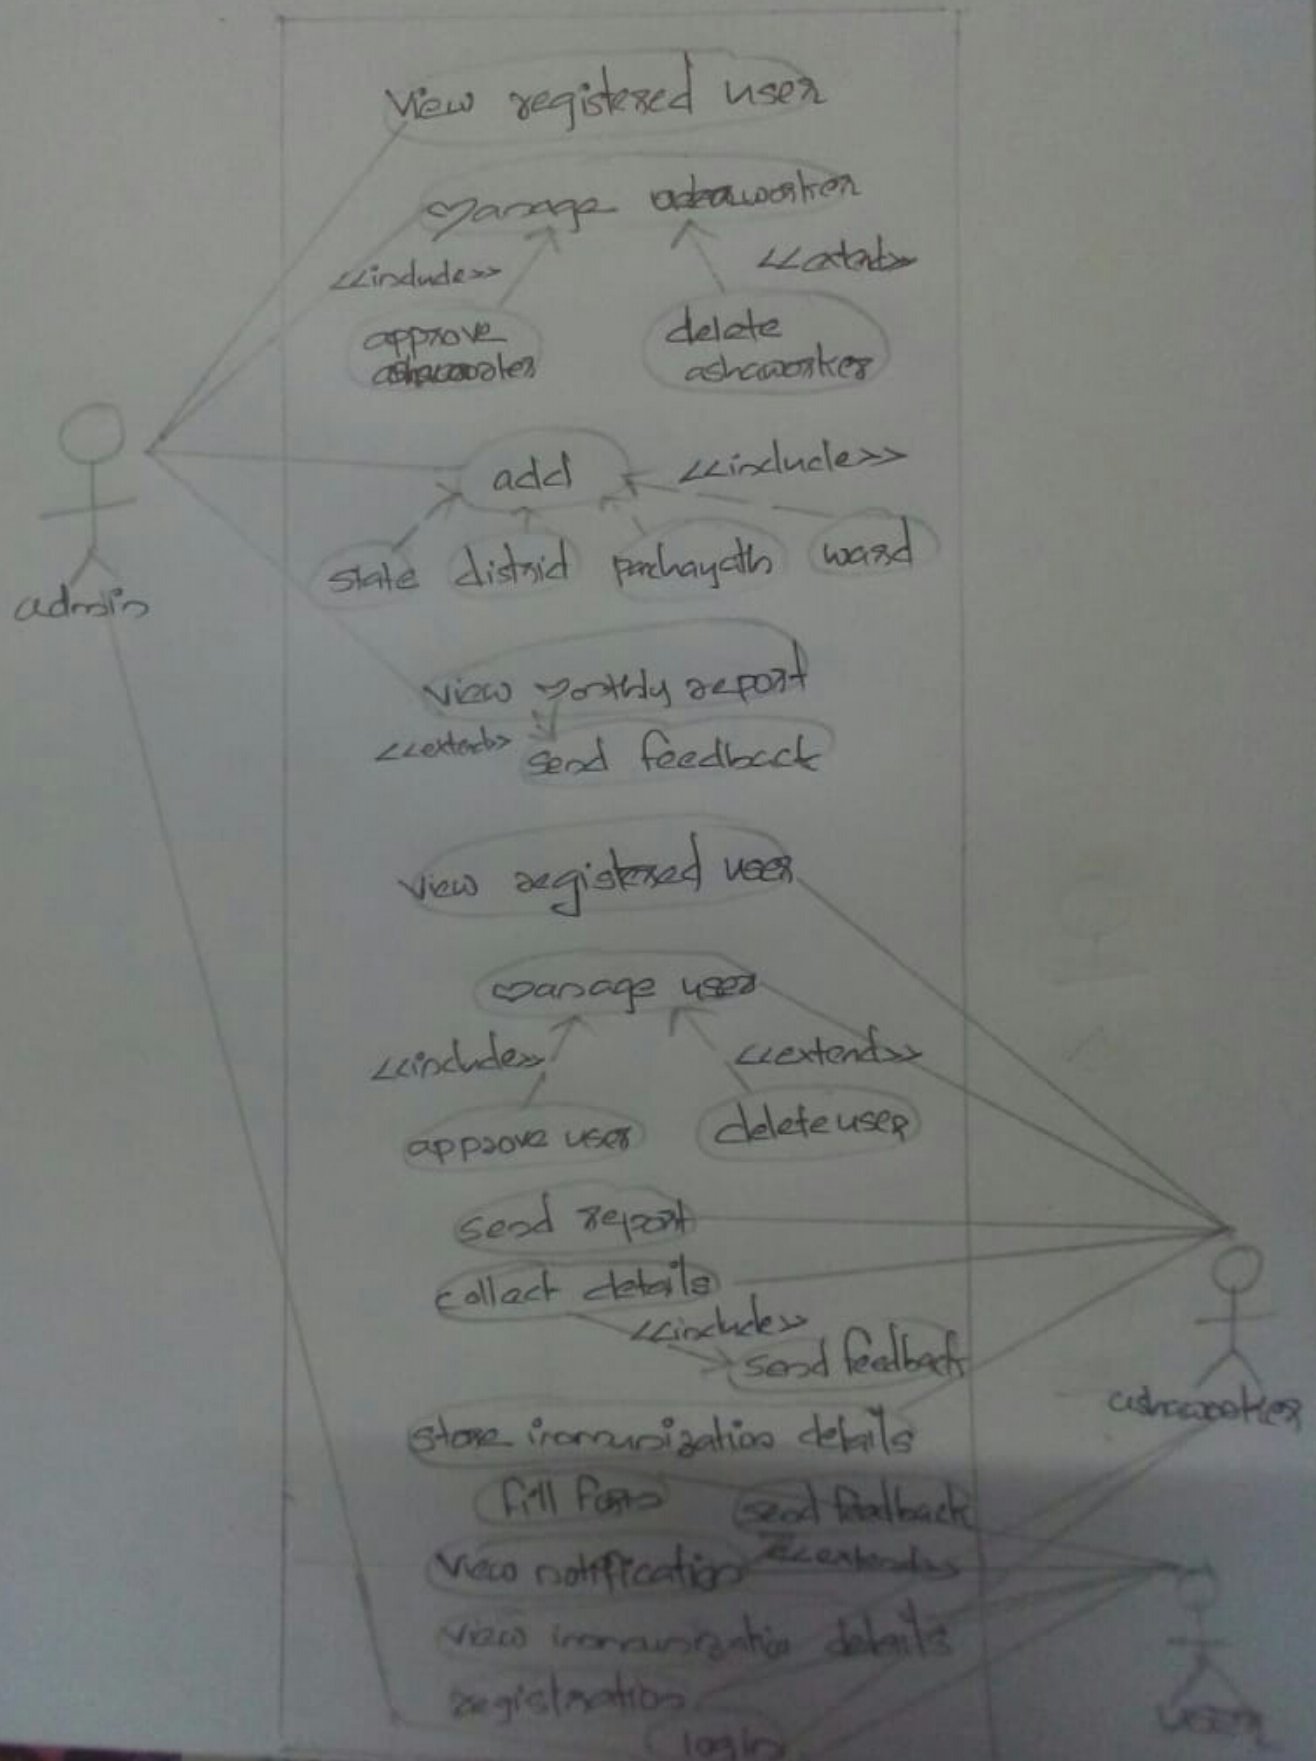 view registered user
manage ashaworker
<<include>>
<<extend>>
approve
ashaworker
delete
ashaworker
add
<<include>>
state
district
panchayath
ward
admin
view monthly report
<<extend>>
send feedback
view registered user
manage user
<<include>>
<<extend>>
approve user
delete user
send report
collect details
<<include>>
send feedback
ashaworker
store immunization details
fill form
send feedback
view notification
<<extend>>
view immunization details
registration
user
login